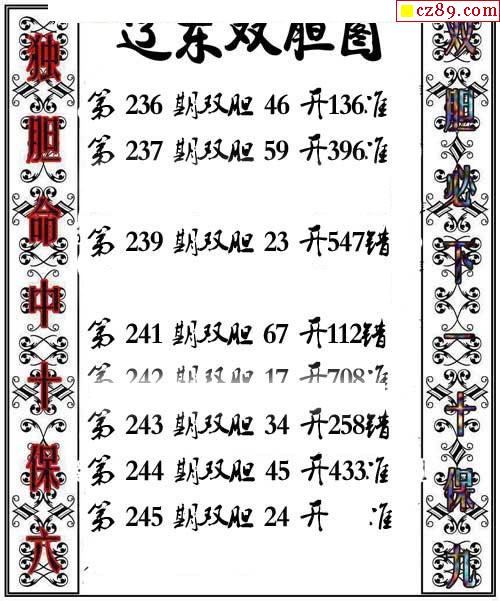 cz89.com
辽东双胆图
独胆命中十保六
第 236 期双胆 46 开136准
第 237 期双胆 59 开396准
第 239 期双胆 23 开547错
第 241 期双胆 67 开112错
第 242 期双胆 17 开708准
第 243 期双胆 34 开258错
第 244 期双胆 45 开433准
第 245 期双胆 24 开 准
双胆必下一十保九